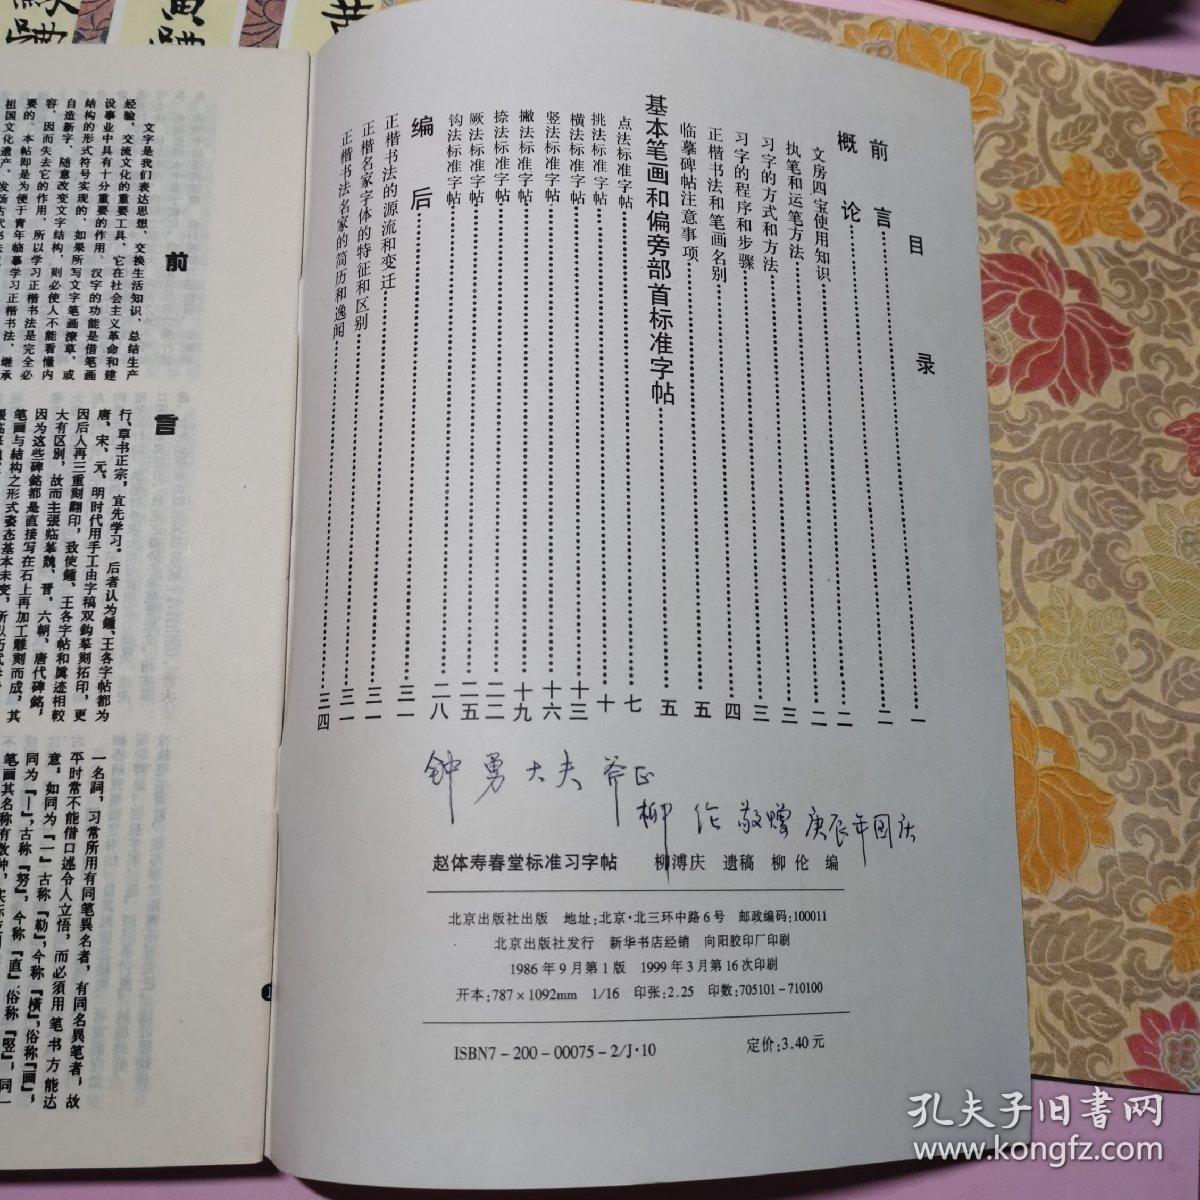 目录
前言……一
概论……二
文房四宝使用知识……二
执笔和运笔方法……三
习字的方式和方法……三
习字的程序和步骤……四
正楷书法和笔画名别……五
临摹碑帖注意事项……五
基本笔画和偏旁部首标准字帖
点法标准字帖……七
挑法标准字帖……十
横法标准字帖……十三
竖法标准字帖……十六
撇法标准字帖……十九
捺法标准字帖……二二
厥法标准字帖……二五
钩法标准字帖……二八
编后……三一
正楷书法的源流和变迁……三一
正楷名家字体的特征和区别……三一
正楷书法名家的简历和逸闻……三四
钟勇大夫斧正
柳伦敬赠 庚辰年国庆
赵体寿春堂标准习字帖 柳溥庆 遗稿 柳伦 编
北京出版社出版 地址:北京·北三环中路6号 邮政编码:100011
北京出版社发行 新华书店经销 向阳胶印厂印刷
1986年9月第1版 1999年3月第16次印刷
开本:787×1092mm 1/16 印张:2.25 印数:705101-710100
ISBN7-200-00075-2/J·10 定价:3.40元
前言
文字是我们表达思想,交换生活知识,总结生产
经验,交流文化的重要工具,它在社会主义革命和建
设事业中具有十分重要的作用。汉字的功能是借笔画
结构的形式符号实现的,如果所写文字笔画潦草,或
自造新字,随意改变文字结构,则必使人不能看懂内
容,因而失去它的作用,所以学习正楷书法是完全必
要的。本帖即是为便于青年临摹学习正楷书法,继承
行、草书正宗,宜先学习。后者认为鍾、王各字帖都为
唐、宋、元、明时代用手工由字稿双鈎摹刻拓印,更
因后人再三重刻翻印,致使鍾、王各字帖和眞迹相較
大有区别,故而主張临摹魏、晋、六朝、唐代碑銘,
因为这些碑銘都是直接写在石上再加工雕刻而成,其
笔画与結构之形式姿态基本未变,
一名詞,习常所用有同笔異名者,有同名異笔者,故
平时常不能借口述令人立悟,而必須用笔书方能达
意。如同为「一」古称「勒」,今称「横」,俗称「画」,
同为「丨」,古称「努」,今称「直」,俗称「竪」,同一
孔夫子旧书网
www.kongfz.com